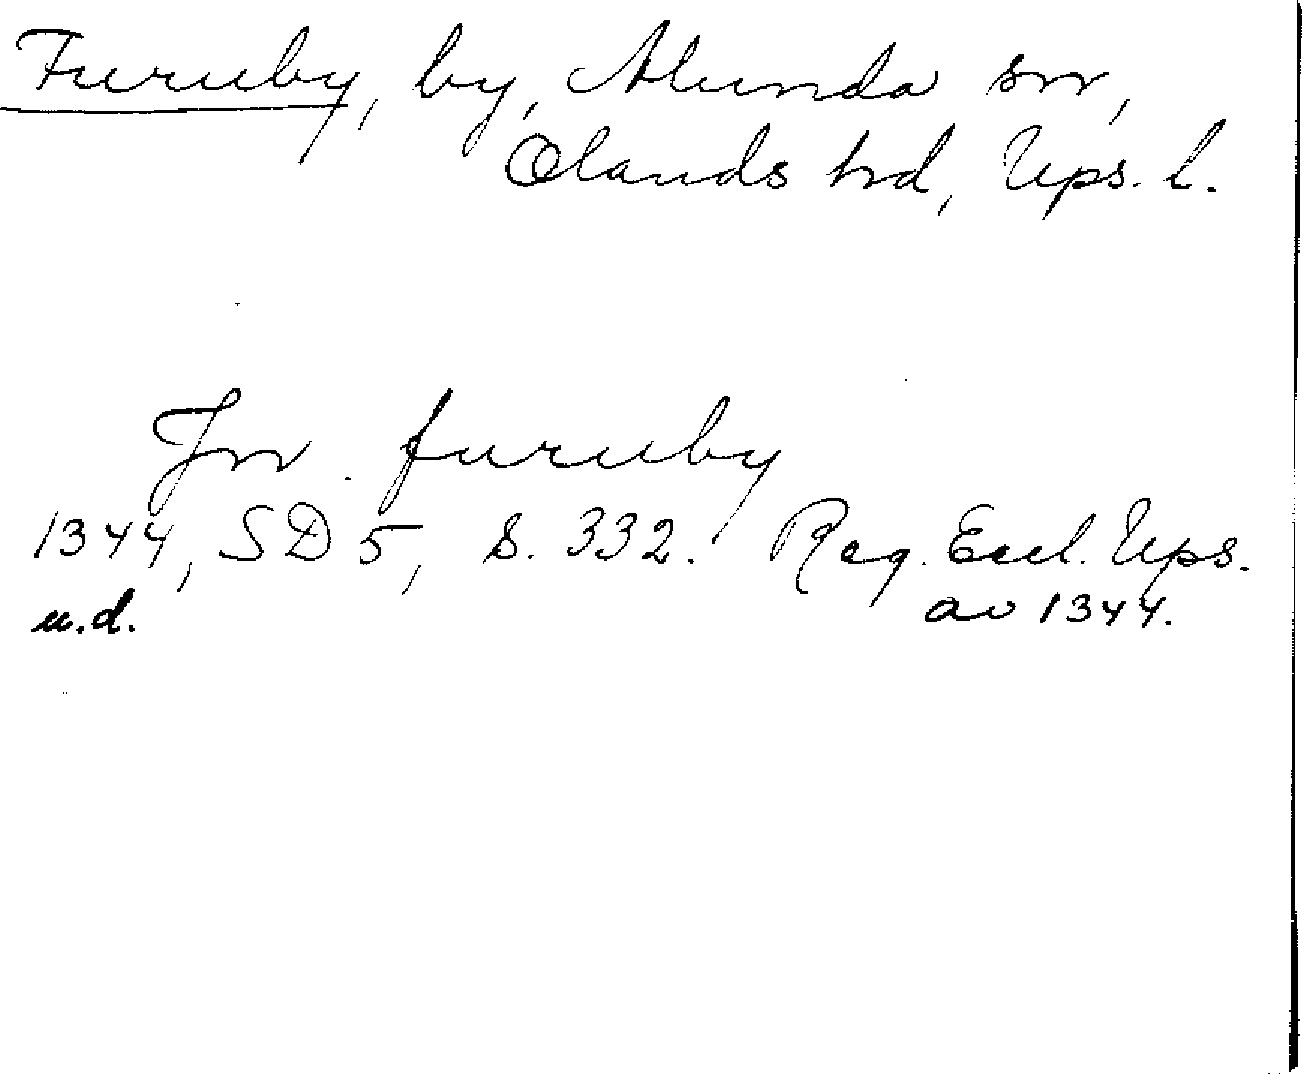 Furuby, by, Alunda sn,
Olands hd, Ups. l.
Jn furuby
1344, SD 5, s. 332. Reg. Eccl. Ups.
u.d. av 1344.